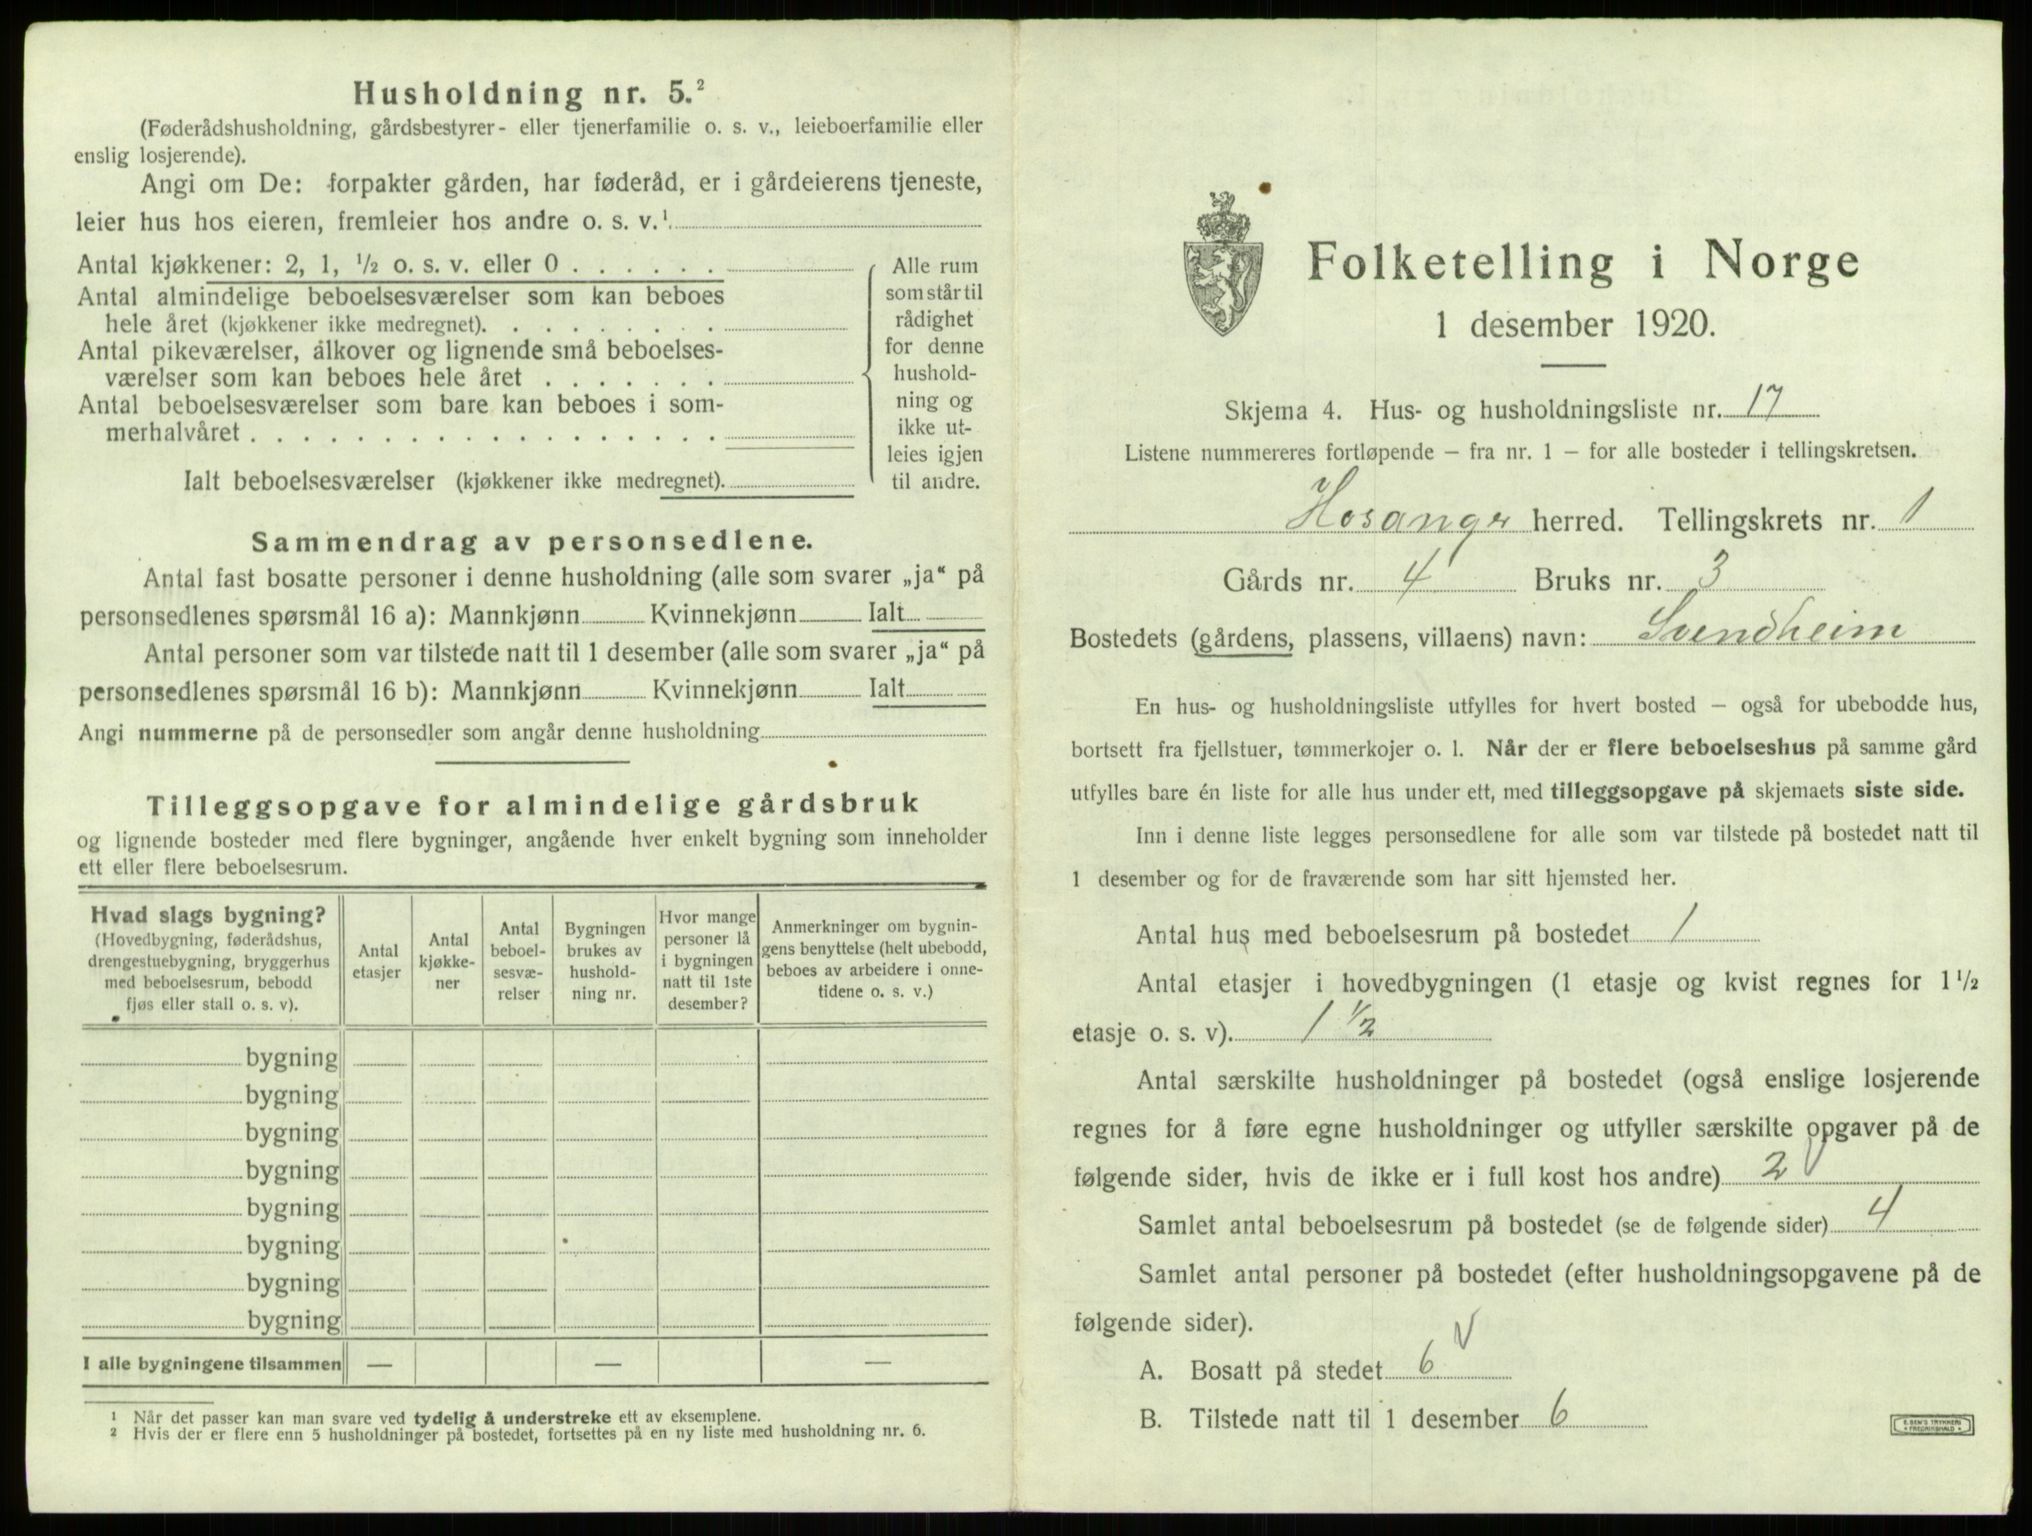 Husholdning nr. 5.²
(Føderådshusholdning, gårdsbestyrer- eller tjenerfamilie o. s. v., leieboerfamilie eller
enslig losjerende).
Angi om De: forpakter gården, har føderåd, er i gårdeierens tjeneste,
leier hus hos eieren, fremleier hos andre o. s. v.¹
Antal kjøkkener: 2, 1, ½ o. s. v. eller 0 . . . . . .
Antal almindelige beboelsesværelser som kan beboes
hele året (kjøkkener ikke medregnet). . . . . . . . .
Antal pikeværelser, alkover og lignende små beboelses-
værelser som kan beboes hele året . . . . . . .
Antal beboelsesværelser som bare kan beboes i som-
merhalvåret . . . . . . . . . . . . . . . . . .
Ialt beboelsesværelser (kjøkkener ikke medregnet).
Alle rum
som står til
rådighet
for denne
hushold-
ning og
ikke ut-
leies igjen
til andre.
Sammendrag av personsedlene.
Antal fast bosatte personer i denne husholdning (alle som svarer „ja“ på
personsedlenes spørsmål 16 a): Mannkjønn Kvinnekjønn Ialt
Antal personer som var tilstede natt til 1 desember (alle som svarer „ja“ på
personsedlenes spørsmål 16 b): Mannkjønn Kvinnekjønn Ialt
Angi nummerne på de personsedler som angår denne husholdning
Tilleggsopgave for almindelige gårdsbruk
og lignende bosteder med flere bygninger, angående hver enkelt bygning som inneholder
ett eller flere beboelsesrum.
Hvad slags bygning?
(Hovedbygning, føderådshus,
drengestuebygning, bryggerhus
med beboelsesrum, bebodd
fjøs eller stall o. s. v).
Antal
etasjer
Antal
kjøkke-
ner
Antal
beboel-
sesvæ-
relser
Bygningen
brukes av
hushold-
ning nr.
Hvor mange
personer lå
i bygningen
natt til 1ste
desember?
Anmerkninger om bygnin-
gens benyttelse (helt ubebodd,
beboes av arbeidere i onne-
tidene o. s. v.)
bygning
bygning
bygning
bygning
bygning
bygning
bygning
bygning
I alle bygningene tilsammen — — —
¹ Når det passer kan man svare ved tydelig å understreke ett av eksemplene.
² Hvis der er flere enn 5 husholdninger på bostedet, fortsettes på en ny liste med husholdning nr. 6.
Folketelling i Norge
1 desember 1920.
Skjema 4. Hus- og husholdningsliste nr. 17
Listene nummereres fortløpende – fra nr. 1 – for alle bosteder i tellingskretsen.
Hosanger herred. Tellingskrets nr. 1
Gårds nr. 4 Bruks nr. 3
Bostedets (gårdens, plassens, villaens) navn: Svendheim
En hus- og husholdningsliste utfylles for hvert bosted – også for ubebodde hus,
bortsett fra fjellstuer, tømmerkojer o. l. Når der er flere beboelseshus på samme gård
utfylles bare én liste for alle hus under ett, med tilleggsopgave på skjemaets siste side.
Inn i denne liste legges personsedlene for alle som var tilstede på bostedet natt til
1 desember og for de fraværende som har sitt hjemsted her.
Antal hus med beboelsesrum på bostedet 1
Antal etasjer i hovedbygningen (1 etasje og kvist regnes for 1½
etasje o. s. v). 1 ½
Antal særskilte husholdninger på bostedet (også enslige losjerende
regnes for å føre egne husholdninger og utfyller særskilte opgaver på de
følgende sider, hvis de ikke er i full kost hos andre) 2
Samlet antal beboelsesrum på bostedet (se de følgende sider) 4
Samlet antal personer på bostedet (efter husholdningsopgavene på de
følgende sider).
A. Bosatt på stedet 6
B. Tilstede natt til 1 desember 6
E. SEM'S TRYKKERI
FREDRIKSHALD